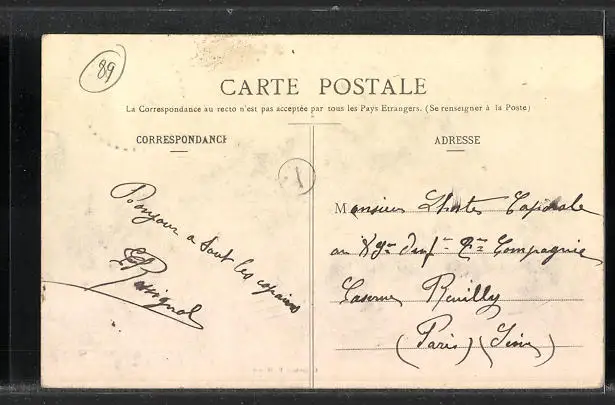 89
CARTE POSTALE
La Correspondance au recto n'est pas acceptée par tous les Pays Etrangers. (Se renseigner à la Poste)
CORRESPONDANCE
ADRESSE
Bonjour a tout les copains
Rossignol
Monsieur Caporale
au 89me Inf Cie Compagnie
Caserne Reuilly
(Paris) (Seine)